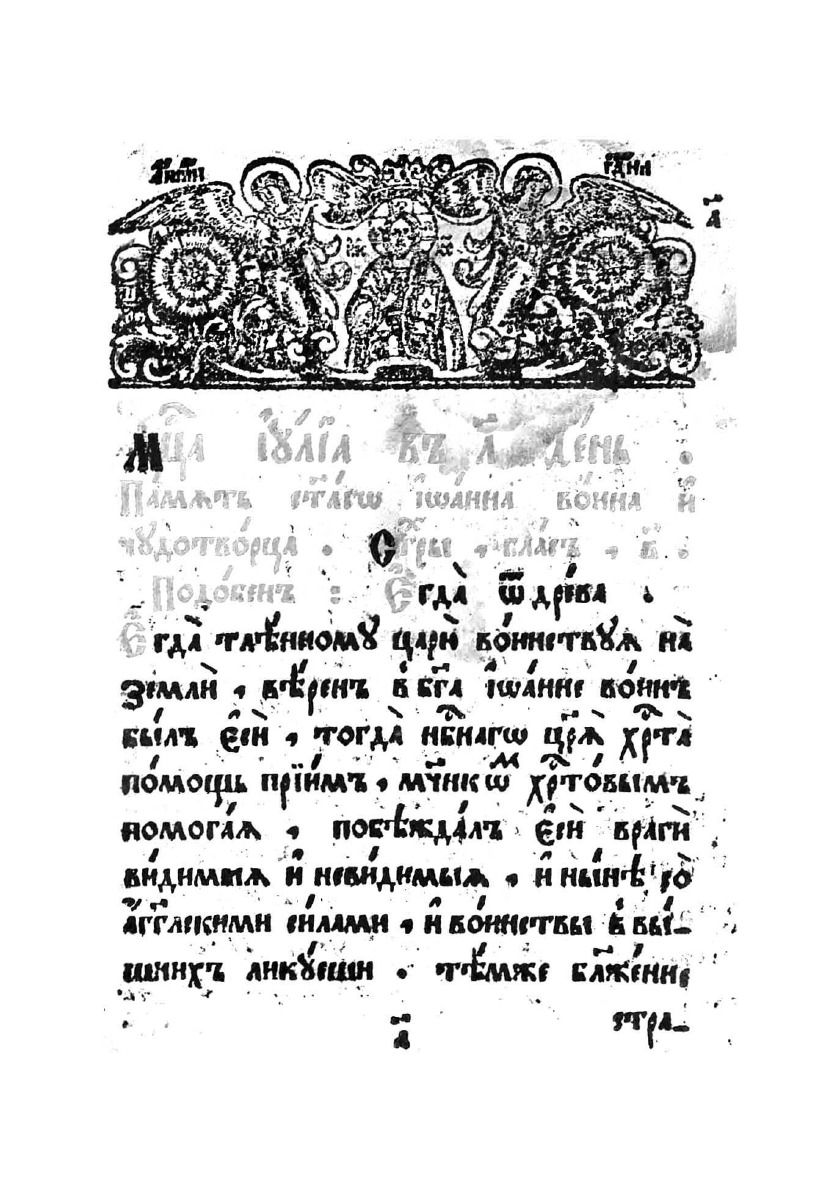 а҃
Мц҃а і҆ꙋ́лїа въ л҃ де́нь .
Па́мѧть ст҃а́гѡ і҆ѡа́нна во́ина и҆
чꙋдотво́рца . Стⷯры , гла́съ , в҃ .
Подо́бенъ : Е҆гда̀ ѿ дре́ва .
Е҆гда̀ тлѣ́нномꙋ царю̀ во́инствꙋѧ на̀
землѝ , вѣ́ренъ в бг҃а і҆ѡа́нне во́инъ
бы́лъ є҆сѝ , тогда̀ нбⷭ҇нагѡ цр҃ѧ̀ хрⷭ҇та̀
по́мощь прїи́мъ , мч҃никѡⷨ хрⷭ҇то́вымъ
помога́ѧ , побѣжда́лъ є҆сѝ врагѝ
ви́димыѧ и҆ неви́димыѧ , и҆ ны́нѣ со̀
а҆́гг҃лскими си́лами , и҆ во́инствы в вы́-
шнихъ лику́еши . тѣ́мже бл҃же́нне
а҃ стра-